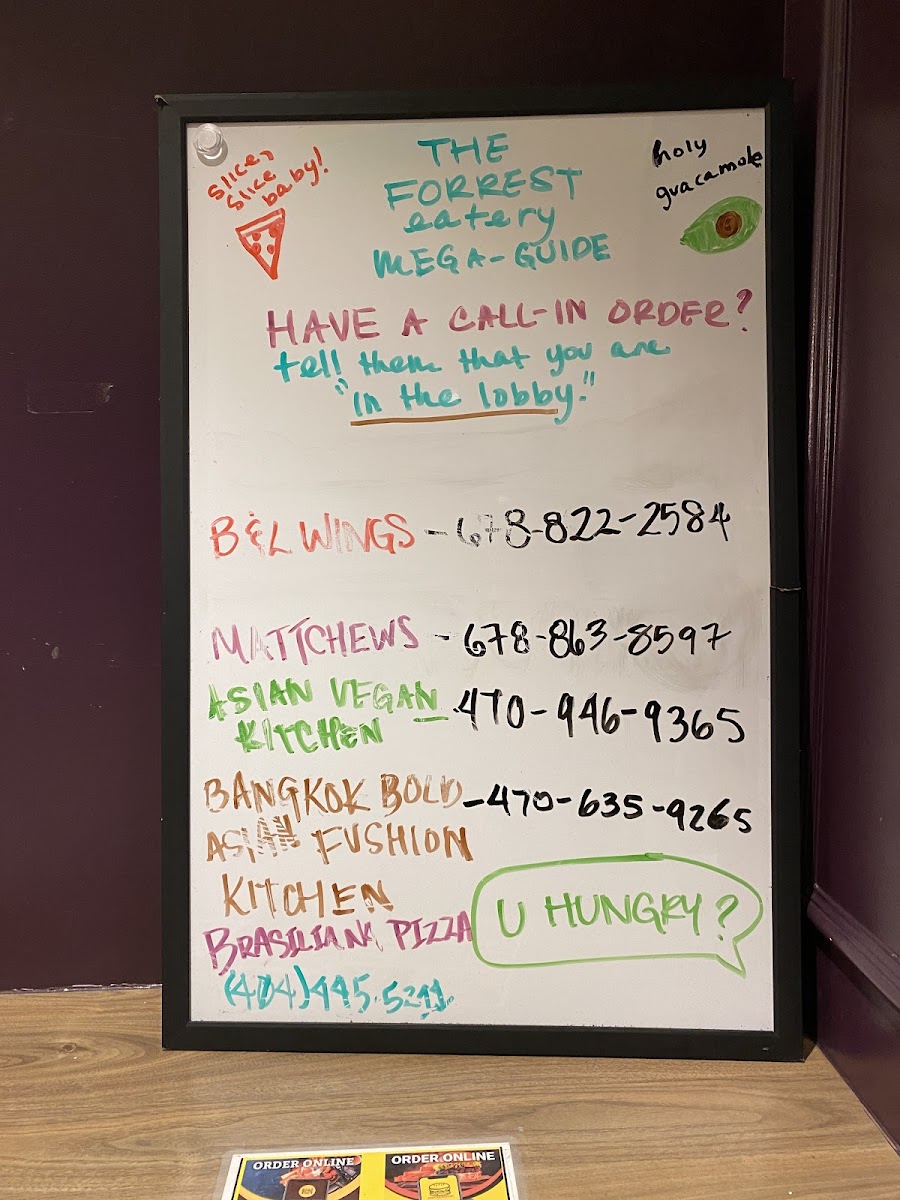 slice, slice baby!
THE
FORREST
eatery
MEGA-GUIDE
holy
guacamole
HAVE A CALL-IN ORDER?
tell them that you are
"in the lobby."
B&L WINGS - 678-822-2584
MATTCHEWS - 678-863-8597
ASIAN VEGAN KITCHEN - 470-946-9365
BANGKOK BOLD - 470-635-9265
ASIAN FUSHION
KITCHEN
U HUNGRY?
BRASILIANA PIZZA
(404)
ORDER ONLINE
ORDER ONLINE